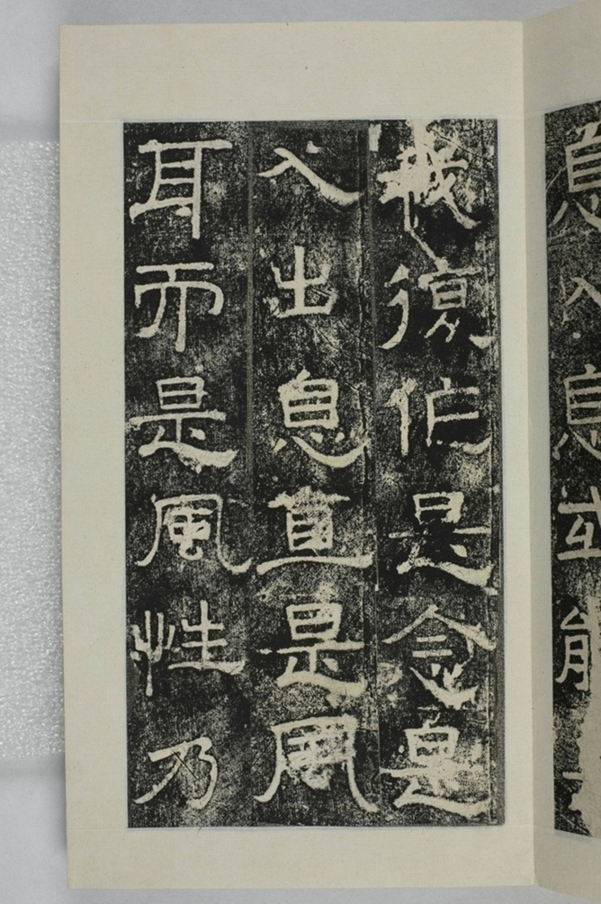 息入息或能
我復作是念是
入出息直是風
耳而是風性乃